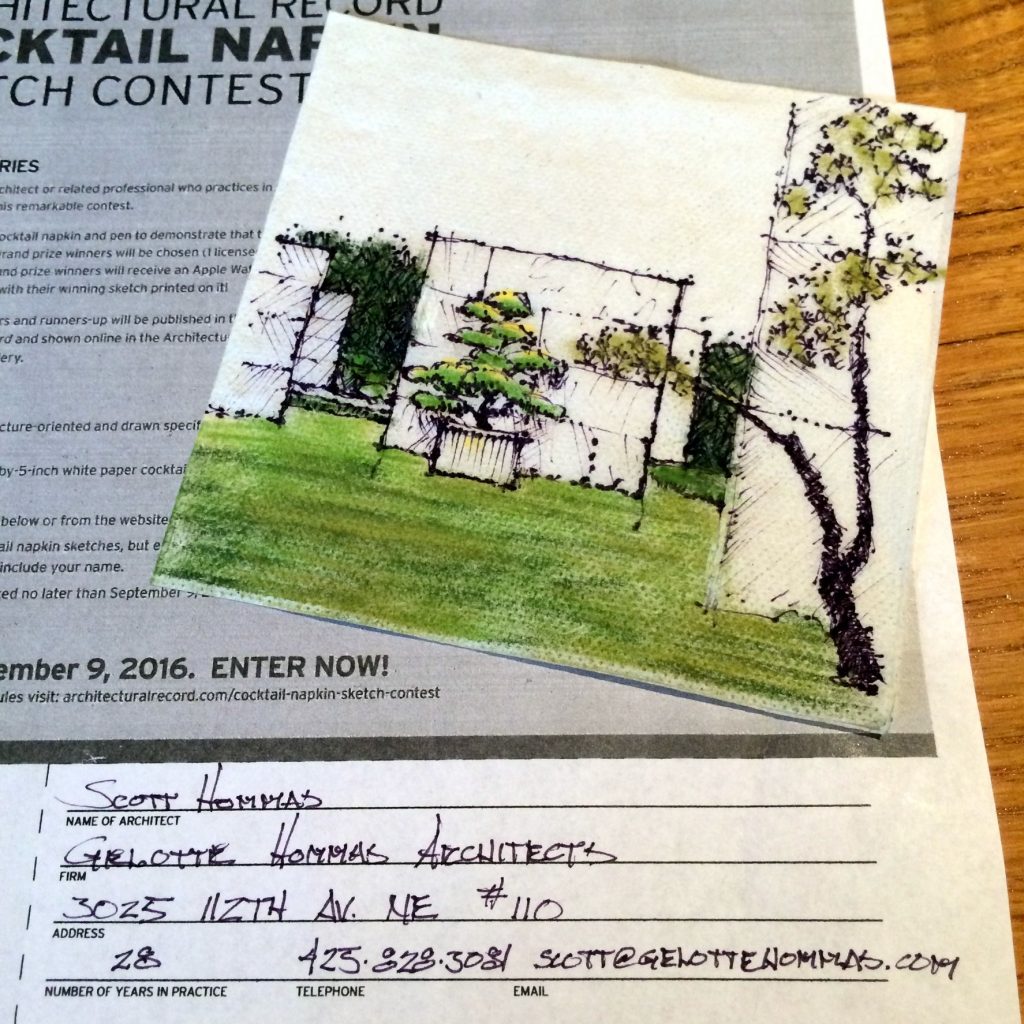 HITECTURAL RECORD
CKTAIL NAPKIN
TCH CONTEST
RIES
chitect or related professional who practices in
his remarkable contest.
ocktail napkin and pen to demonstrate that
rand prize winners will be chosen (1 license
nd prize winners will receive an Apple
with their winning sketch printed on it!
rs and runners-up will be published in
rd and shown online in the
ery.
cture-oriented and drawn
by-5-inch white paper
below or from the website
ail napkin sketches, but
include your name.
ed no later than September 9,
ember 9, 2016. ENTER NOW!
ules visit: architecturalrecord.com/cocktail-napkin-sketch-contest
SCOTT HOMMAS
NAME OF ARCHITECT
GELOTTE HOMMAS ARCHITECTS
FIRM
3025 112TH AV. NE #110
ADDRESS
28 425.828.3081 SCOTT@GELOTTEHOMMAS.COM
NUMBER OF YEARS IN PRACTICE TELEPHONE EMAIL